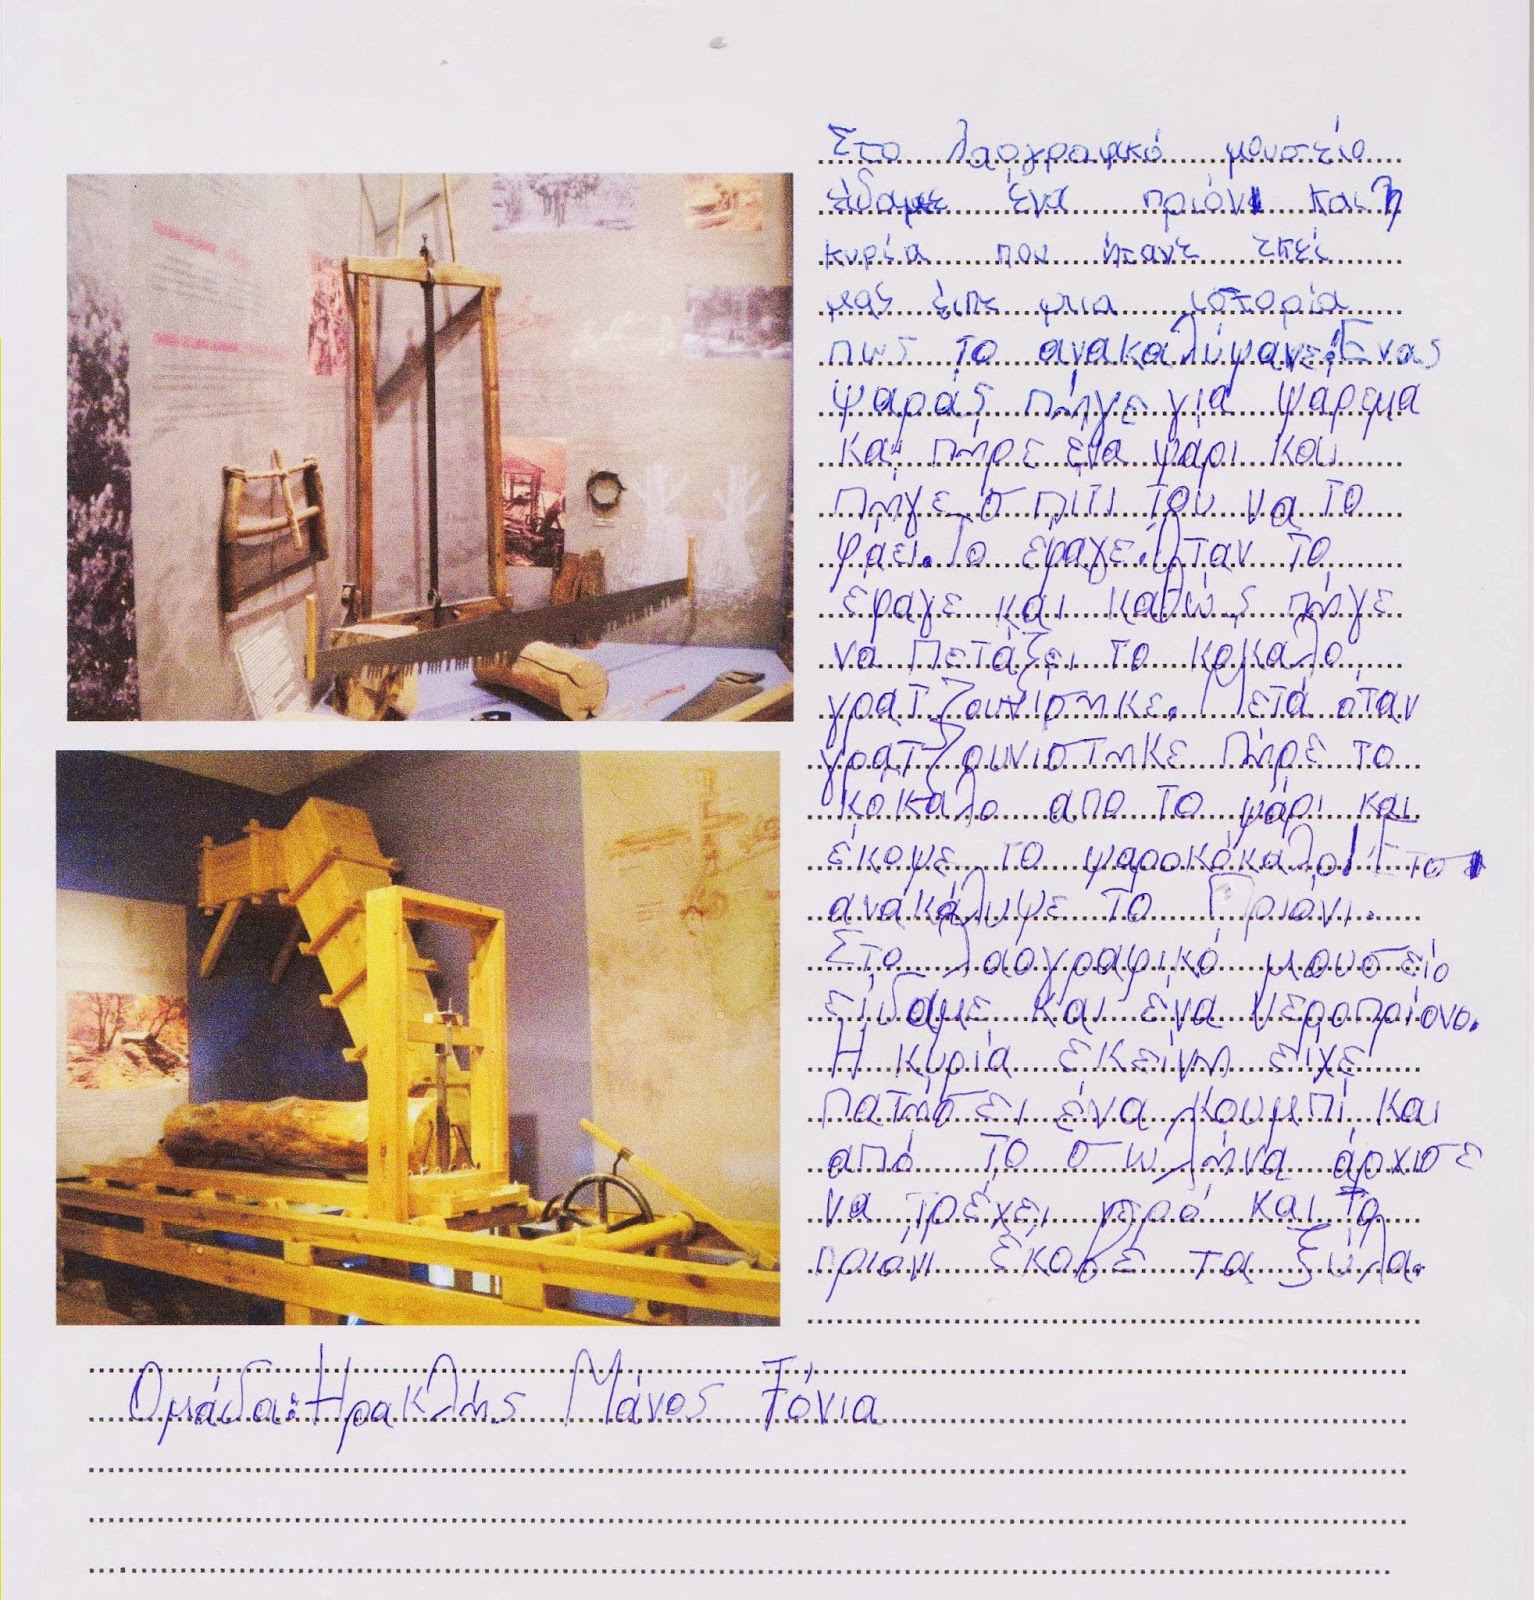 Στο λαογραφικό μουσείο
είδαμε ένα πριόνι και η
κυρία που ήτανε εκεί
μας είπε μια ιστορία
πως το ανακαλύψανε. Ένας
ψαράς πήγε για ψάρεμα
και πήρε ένα ψαρι και
πήγε σπιτι του να το
φάει. Το έφαγε. Όταν το
έφαγε και καθώς πήγε
να πετάξει το κόκαλο
γρατζουνίστηκε. Μετά όταν
γρατζουνιστηκε πήρε το
κόκαλο απο το ψάρι και
έκοψε το ψαροκόκαλο! Ετσι
ανακάλυψε το Πριόνι.
Στο λαογραφικό μουσείο
είδαμε και ένα νεροπρίονο.
Η κυρία εκείνη είχε
πατήσει ένα κουμπί και
από το σωλήνα άρχισε
να τρέχει νερό και το
πριόνι έκοβε τα ξύλα.
Ομάδα: Ηρακλής Μάνος Τόνια